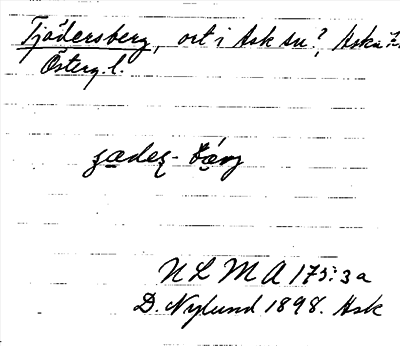 Tjädersberg, ort i Ask sn?, Aska h.
Österg. l.
N L M A 175:3a
D. Nylund 1898. Ask